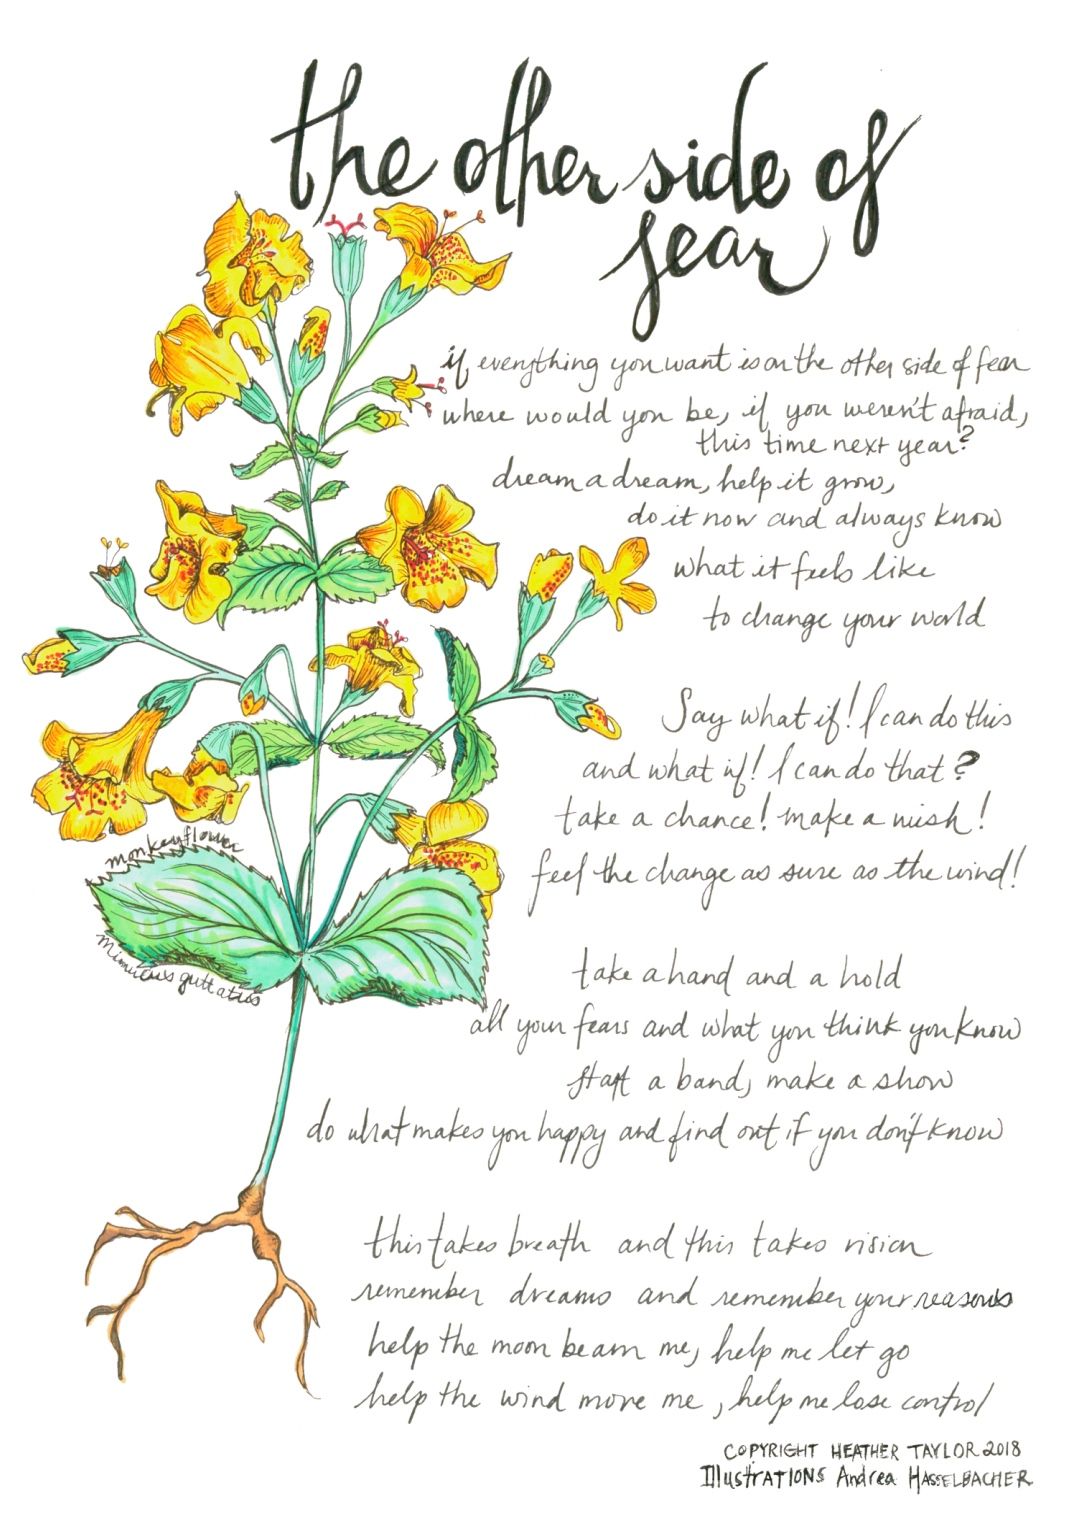 the other side of
fear
if everything you want is on the other side of fear
where would you be, if you weren't afraid,
this time next year?
dream a dream, help it grow,
do it now and always know
what it feels like
to change your world
Say what if! I can do this
and what if! I can do that?
take a chance! make a wish!
feel the change as sure as the wind!
monkeyflower
Mimulus guttatus
take a hand and a hold
all your fears and what you think you know
start a band, make a show
do what makes you happy and find out if you don't know
this takes breath and this takes vision
remember dreams and remember your reasons
help the moon beam me, help me let go
help the wind move me, help me lose control
COPYRIGHT HEATHER TAYLOR 2018
IllustrATIONS Andrea HASSELBACHER